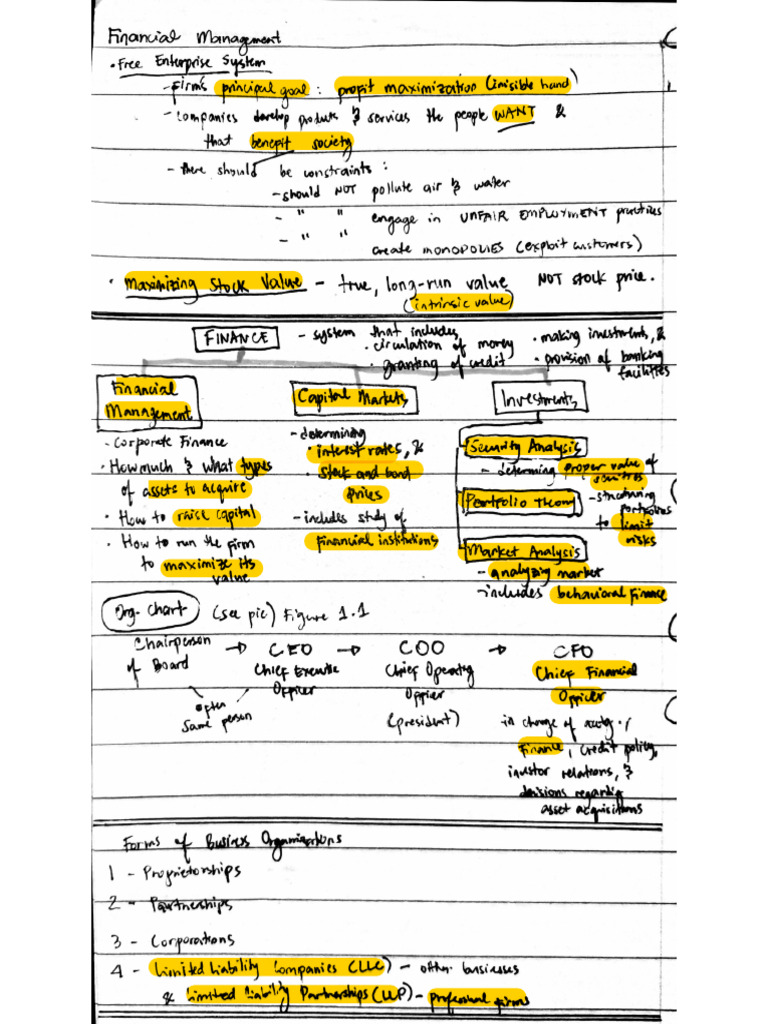 Financial Management
• Free Enterprise System
- Firm's principal goal : profit maximization (invisible hand)
- Companies develop products & services the people WANT &
that benefit society
- there should be constraints :
- should NOT pollute air & water
- " " engage in UNFAIR EMPLOYMENT practices
- " " create MONOPOLIES (exploit customers)
• Maximizing Stock Value - true, long-run value NOT stock price.
(intrinsic value)
FINANCE - system that includes
• circulation of money
• granting of credit
• making investments, &
• provision of banking
facilities
Financial
Management
- Corporate Finance
• How much & what types
of assets to acquire
• How to raise capital
• How to run the firm
to maximize its
value
Capital Markets
- determining
• interest rates, &
• stock and bond
prices
- includes study of
financial institutions
Investments
Security Analysis
- determining proper value of
securities
Portfolio Theory - structuring
portfolios
to limit
risks
Market Analysis
- analyzing market
- includes behavioral finance
Org. Chart (see pic) Figure 1.1
Chairperson
of Board → CEO → COO → CFO
Chief Executive
Officer
Chief Operating
Officer
(president)
Chief Financial
Officer
often
same person
in charge of acctg.,
finance, credit policy,
investor relations, &
decisions regarding
asset acquisitions
Forms of Business Organizations
1 - Proprietorships
2 - Partnerships
3 - Corporations
4 - Limited Liability Companies (LLC) - other businesses
& Limited Liability Partnerships (LLP) - professional firms